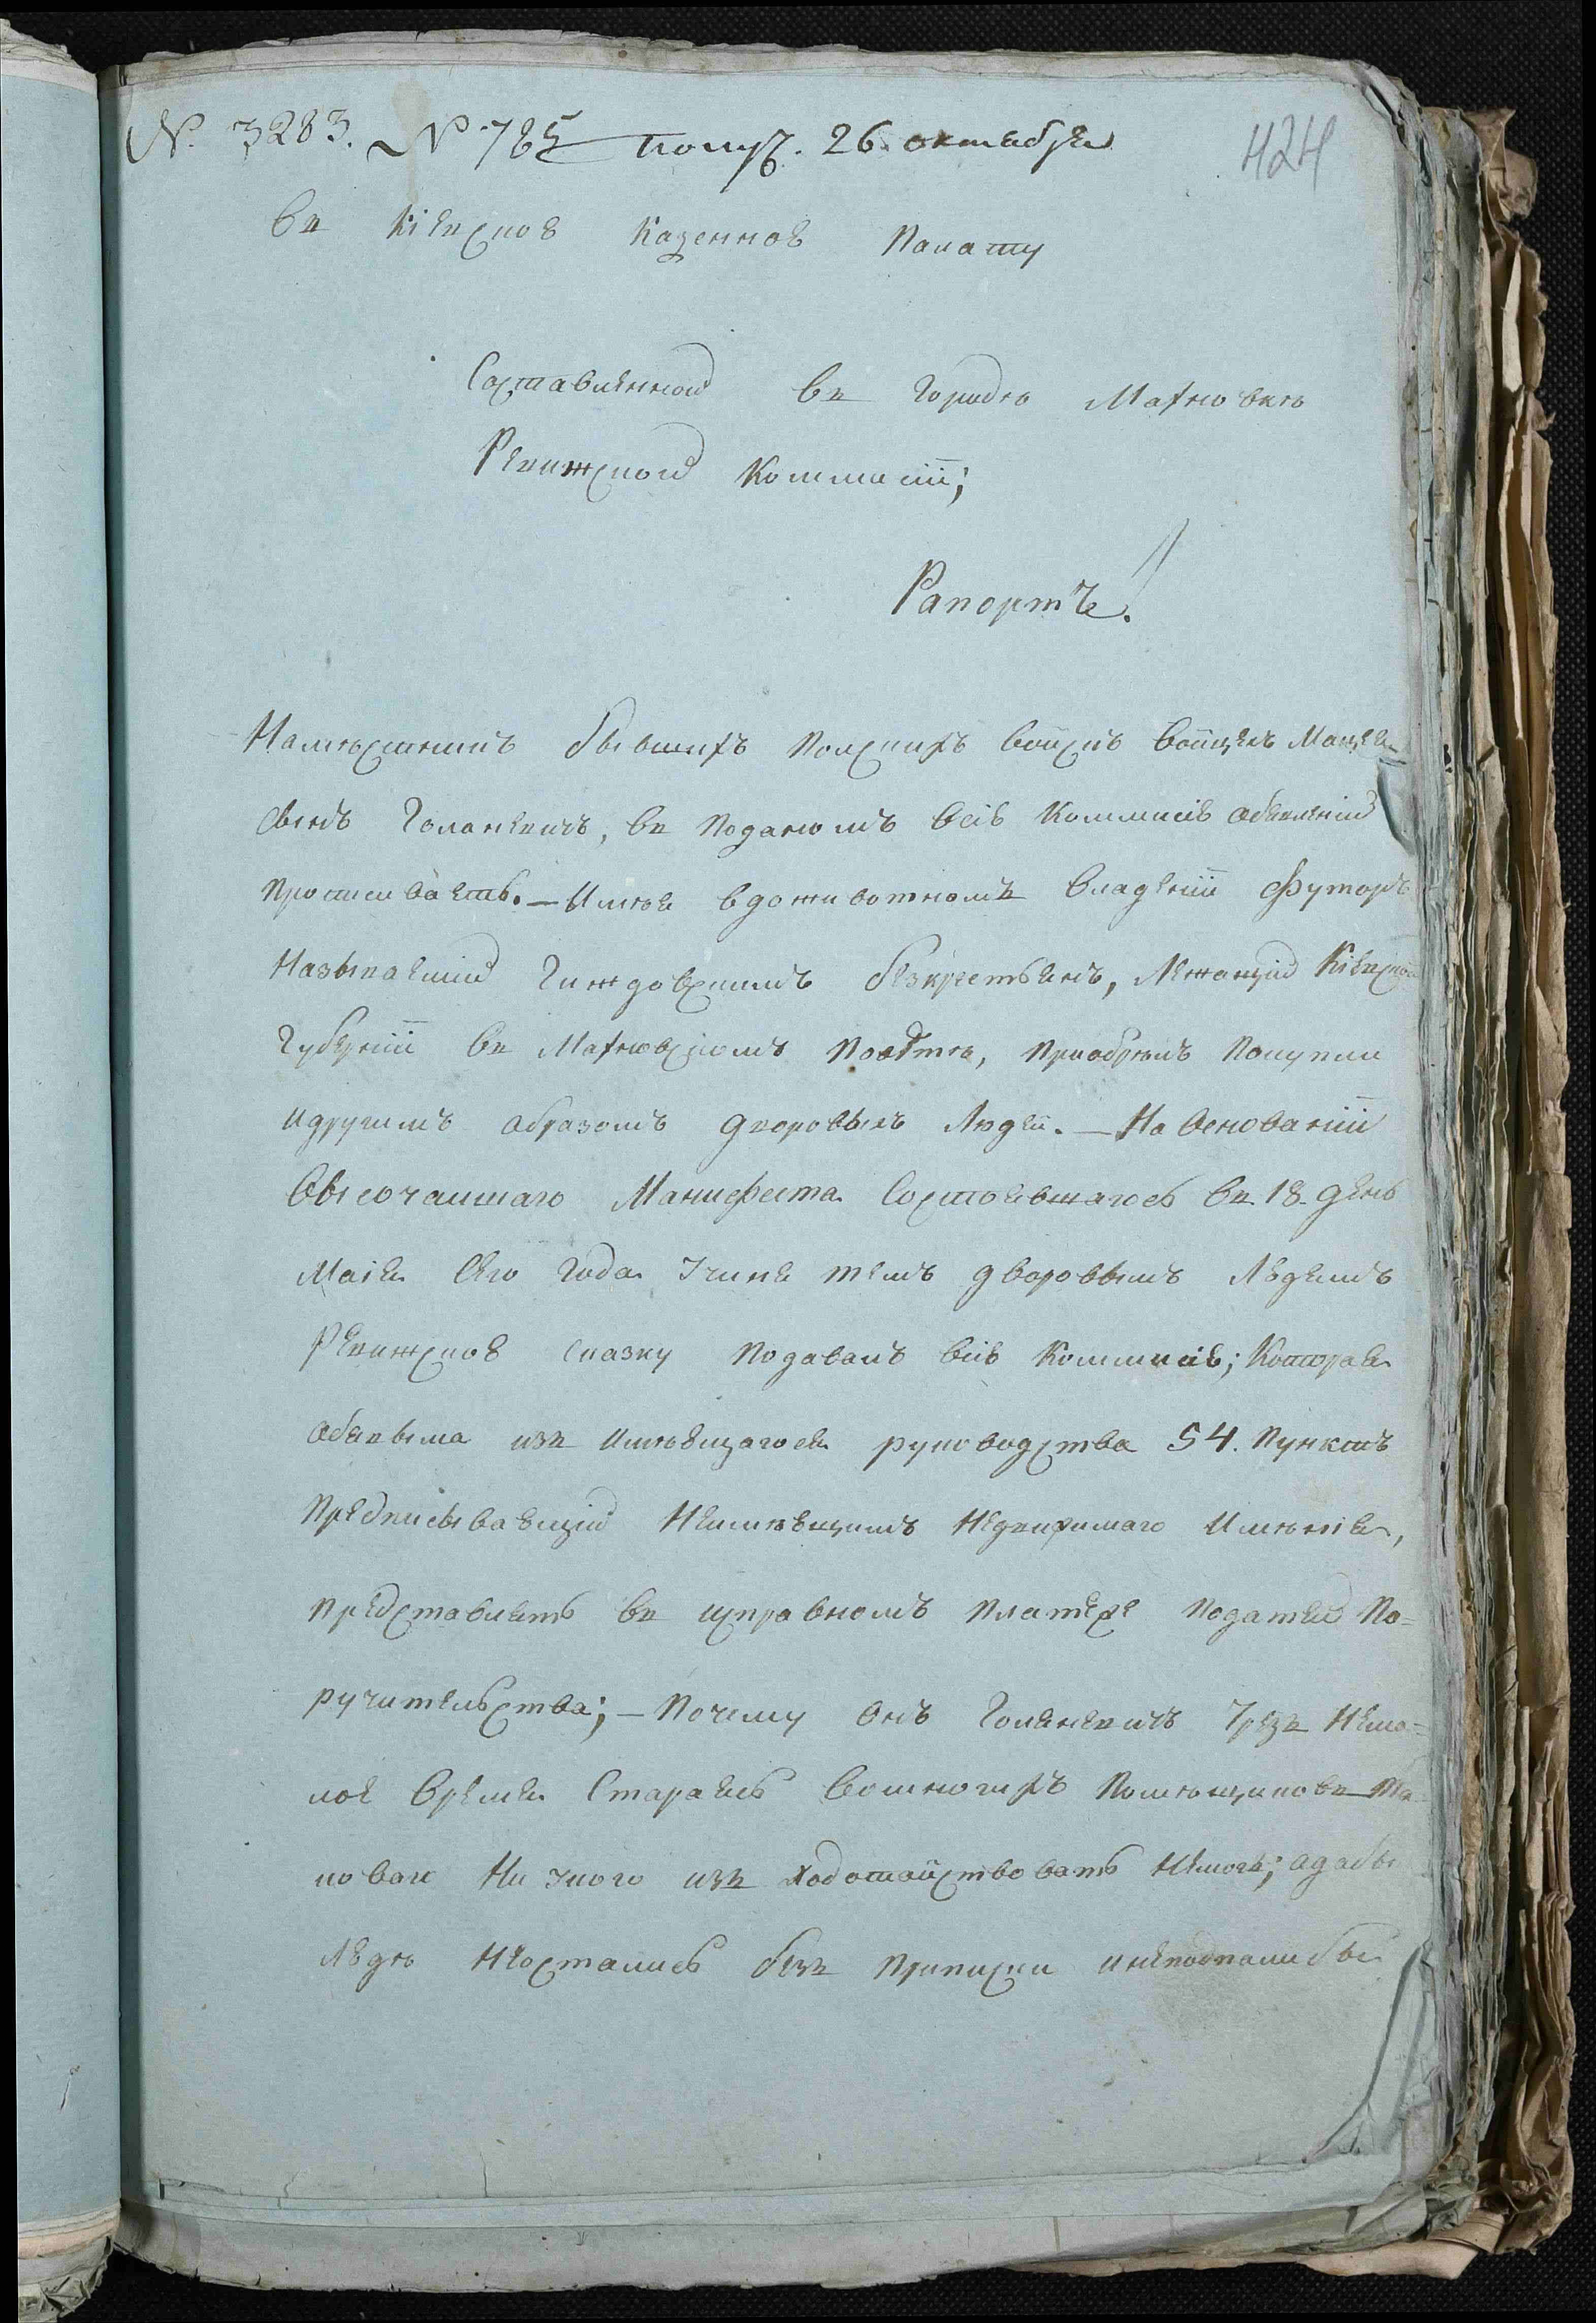 №. 3283. № 785 получ. 26. октября
424
Въ Кіевскою Казенною Палату
Составленной въ городѣ Махновкѣ
Ревижской Коммисіи;
Рапортъ!
Намѣстникъ бывшихъ Полскихъ войскъ Войцехъ
Голаневичъ, въ поданомъ в сію Коммисію обявленіи
прописываетъ. — Имѣя в доживотномъ владеніи Футоръ
называемій безкрестьянъ, лежащій Кіевской
Губерніи въ Махновскомъ поветѣ, приобрелъ покупки
и другимъ образомъ дворовыхъ людей. — На основаніи
Высочаишаго Манифеста состоявшагось въ 18. день
Маія сего года темъ дворовымъ людемъ
Ревижскою сказку подавалъ в сію Коммисію; которая
обявыла изъ имѣющагося руководства 54. пунктъ
предписывающій неимѣющимъ недвижимаго имѣнія,
представлять въ исправномъ платеже податей по-
ручительства; — почему онъ Голяневичъ чрезъ нема-
лое время стараясь во многихъ помѣщиковъ
ни одного изъ ходотайствовать немогъ; а дабы
людѣ неосталысь безъ приписки и неподпали бы